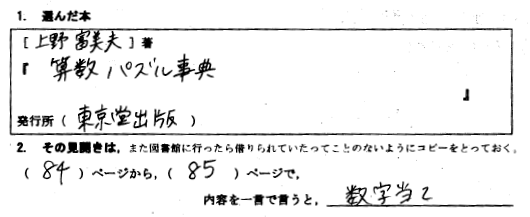 1. 選んだ本
［上野富美夫］著
『算数パズル事典
』
発行所（東京堂出版）
2. その見開きは，また図書館に行ったら借りられていたってことのないようにコピーをとっておく。
（84）ページから，（85）ページで，
内容を一言で言うと，数字当て